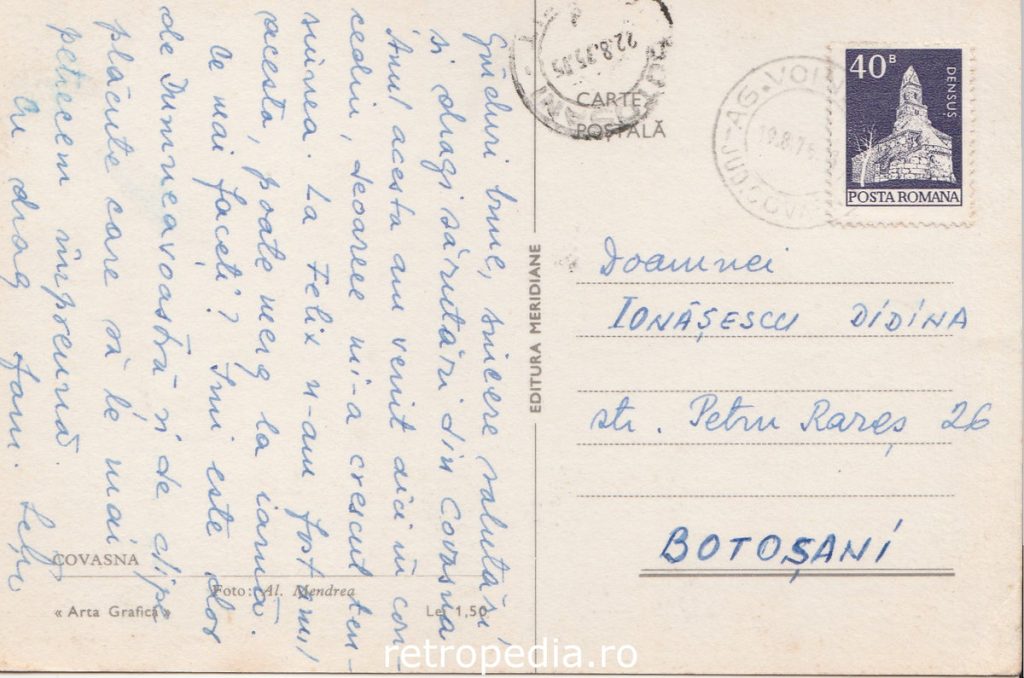 Gânduri bune, sincere salutări
și dragi sărutări din Covasna
Anul acesta am venit aici în con-
cediu, deoarece mi-a crescut ten-
siunea. La Felix n-am fost anul
acesta, poate merg la iarnă.
Ce mai faceți? Îmi este dor
de Dumneavoastră și de clipe
plăcute care să le mai
petrecem împreună.
Cu drag Jani.
COVASNA
Foto: Al. Mendrea
« Arta Grafică »
Lei 1,50
EDITURA MERIDIANE
CARTE
POȘTALĂ
22.8.75.
BOTOȘANI
AG. VOI
19.8.75
JUD. COVASNA
40 B
DENSUȘ
POSTA ROMANA
Doamnei
IONĂȘESCU DIDINA
str. Petru Rareș 26
BOTOȘANI
retropedia.ro